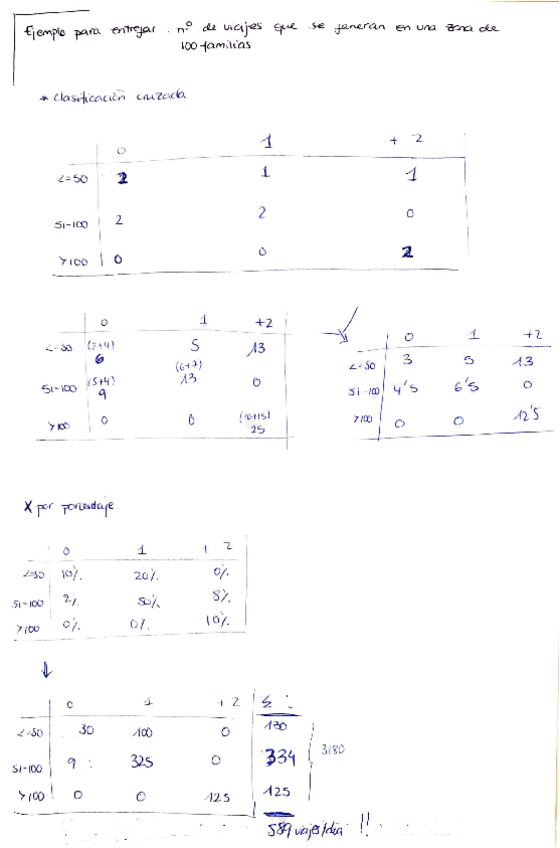 Ejemplo para entregar. nº de viajes que se generan en una zona de
100 familias
* clasificación cruzada
0 1 + 2
<=50 2 1 1
51-100 2 2 0
>100 0 0 2
0 1 +2
<=50 (2+4) 6 5 13
51-100 (5+4) 9 (6+7) 13 0
>100 0 0 (10+15) 25
0 1 +2
<=50 3 5 13
51-100 4'5 6'5 0
>100 0 0 12'5
X por porcentaje
0 1 + 2
<=50 10% 20% 0%
51-100 2% 50% 8%
>100 0% 0% 10%
0 1 + 2 Σ :
<=50 30 100 0 130
51-100 9 : 325 0 334 3180
>100 0 0 125 125
589 viajes/día !!